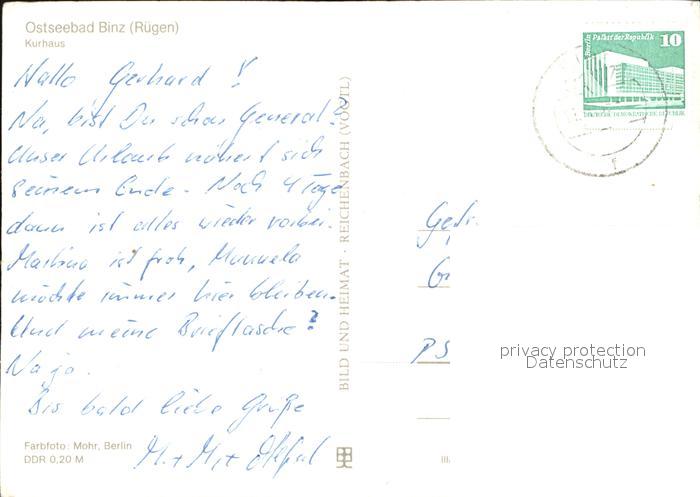 Ostseebad Binz (Rügen)
Kurhaus
Hallo Gerhard!
Na, bist Du schon General?
Unser Urlaub nähert sich
seinem Ende. Noch 4 Tage
dann ist alles wieder vorbei.
Martina ist froh, Manuela
möchte immer hier bleiben.
Und meine Brieftasche?
Na ja.
Bis bald liebe Grüße
M. + M. +
Farbfoto: Mohr, Berlin
DDR 0,20 M
BILD UND HEIMAT · REICHENBACH (VOGTL)
Berlin Palast der Republik 10
DEUTSCHE DEMOKRATISCHE REPUBLIK
Gefr.
G
PS
privacy protection
Datenschutz